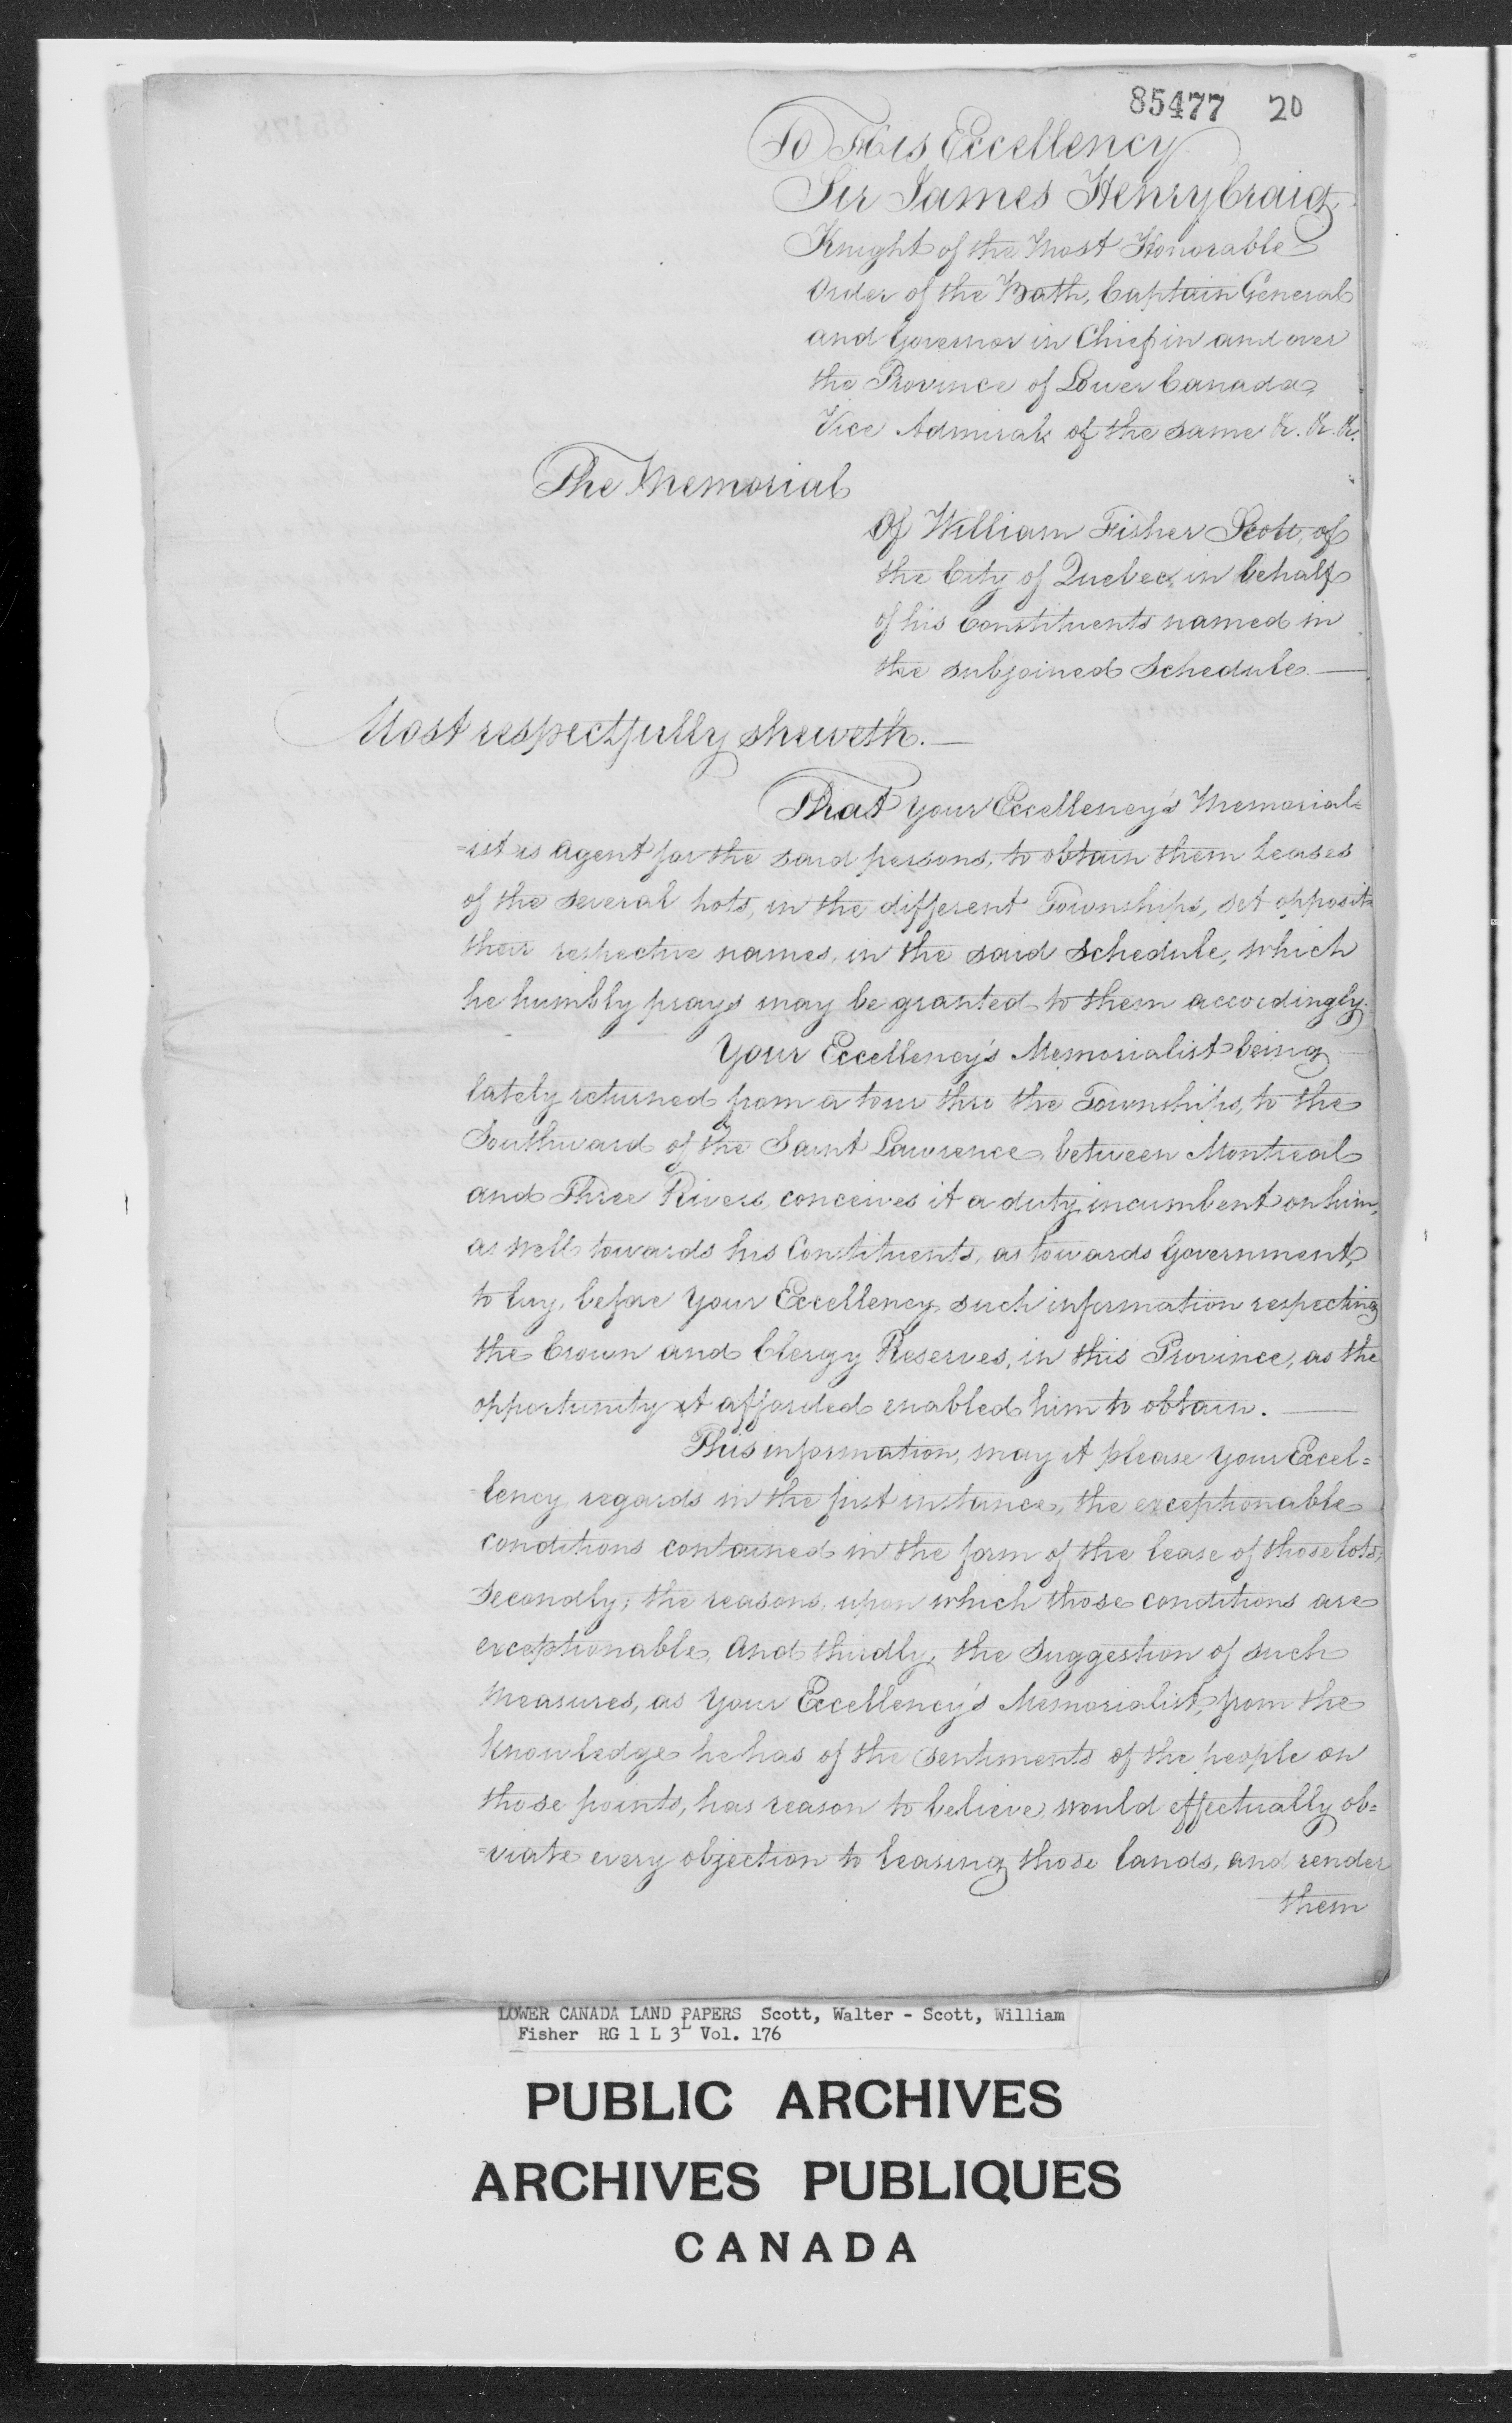 85477 20
To His Excellency
Sir James Henry Craig,
Knight of the Most Honorable
Order of the Bath, Captain General
and Governor in Chief in and over
the Province of Lower Canada,
Vice Admiral of the same &. &. &.
The Memorial
Of William Fisher Scott, of
the City of Quebec, in behalf
of his Constituents named in
the subjoined Schedule. —
Most respectfully sheweth. —
That your Excellency's Memorial=
=ist is Agent for the said persons, to obtain them Leases
of the several Lots, in the different Townships, set opposite
their respective names, in the said Schedule, which
he humbly prays may be granted to them accordingly.
Your Excellency's Memorialist being
lately returned from a tour thro the Townships, to the
Southward of the Saint Lawrence, between Montreal
and Three Rivers, conceives it a duty incumbent on him,
as well towards his Constituents, as towards Government,
to lay, before Your Excellency such information respecting
the Crown and Clergy Reserves, in this Province, as the
opportunity it afforded enabled him to obtain. —
This information, may it please your Excel=
=lency regards in the first instance, the exceptionable
conditions contained in the form of the lease of those lots,
Secondly, the reasons, upon which those conditions are
exceptionable, And thirdly, the Suggestion of such
Measures, as Your Excellency's Memorialist, from the
knowledge he has of the sentiments of the people on
those points, has reason to believe, would effectually ob=
=viate every objection to leasing those lands, and render
them
LOWER CANADA LAND PAPERS Scott, Walter - Scott, William
Fisher RG 1 L 3L Vol. 176
PUBLIC ARCHIVES
ARCHIVES PUBLIQUES
CANADA